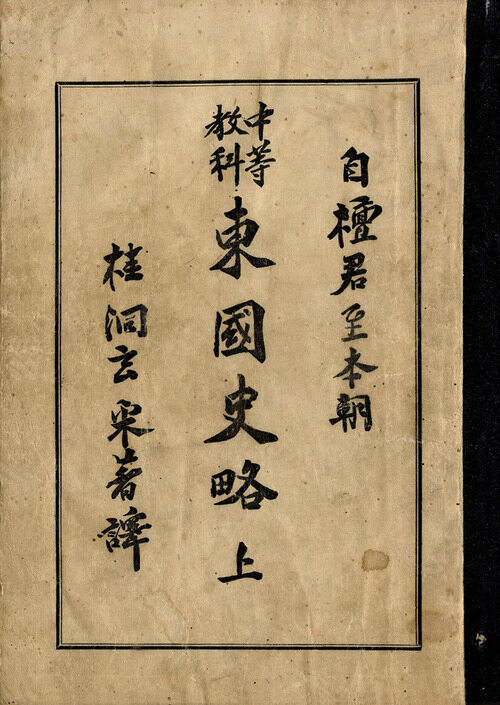 自檀君至本朝
中等
教科
東國史略上
桂洞玄采著譯